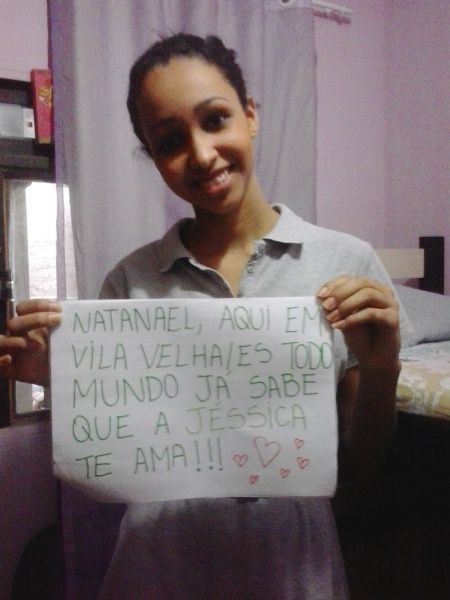 NATANAEL, AQUI EM
VILA VELHA/ES TODO
MUNDO JÁ SABE
QUE A JÉSSICA
TE AMA!!!